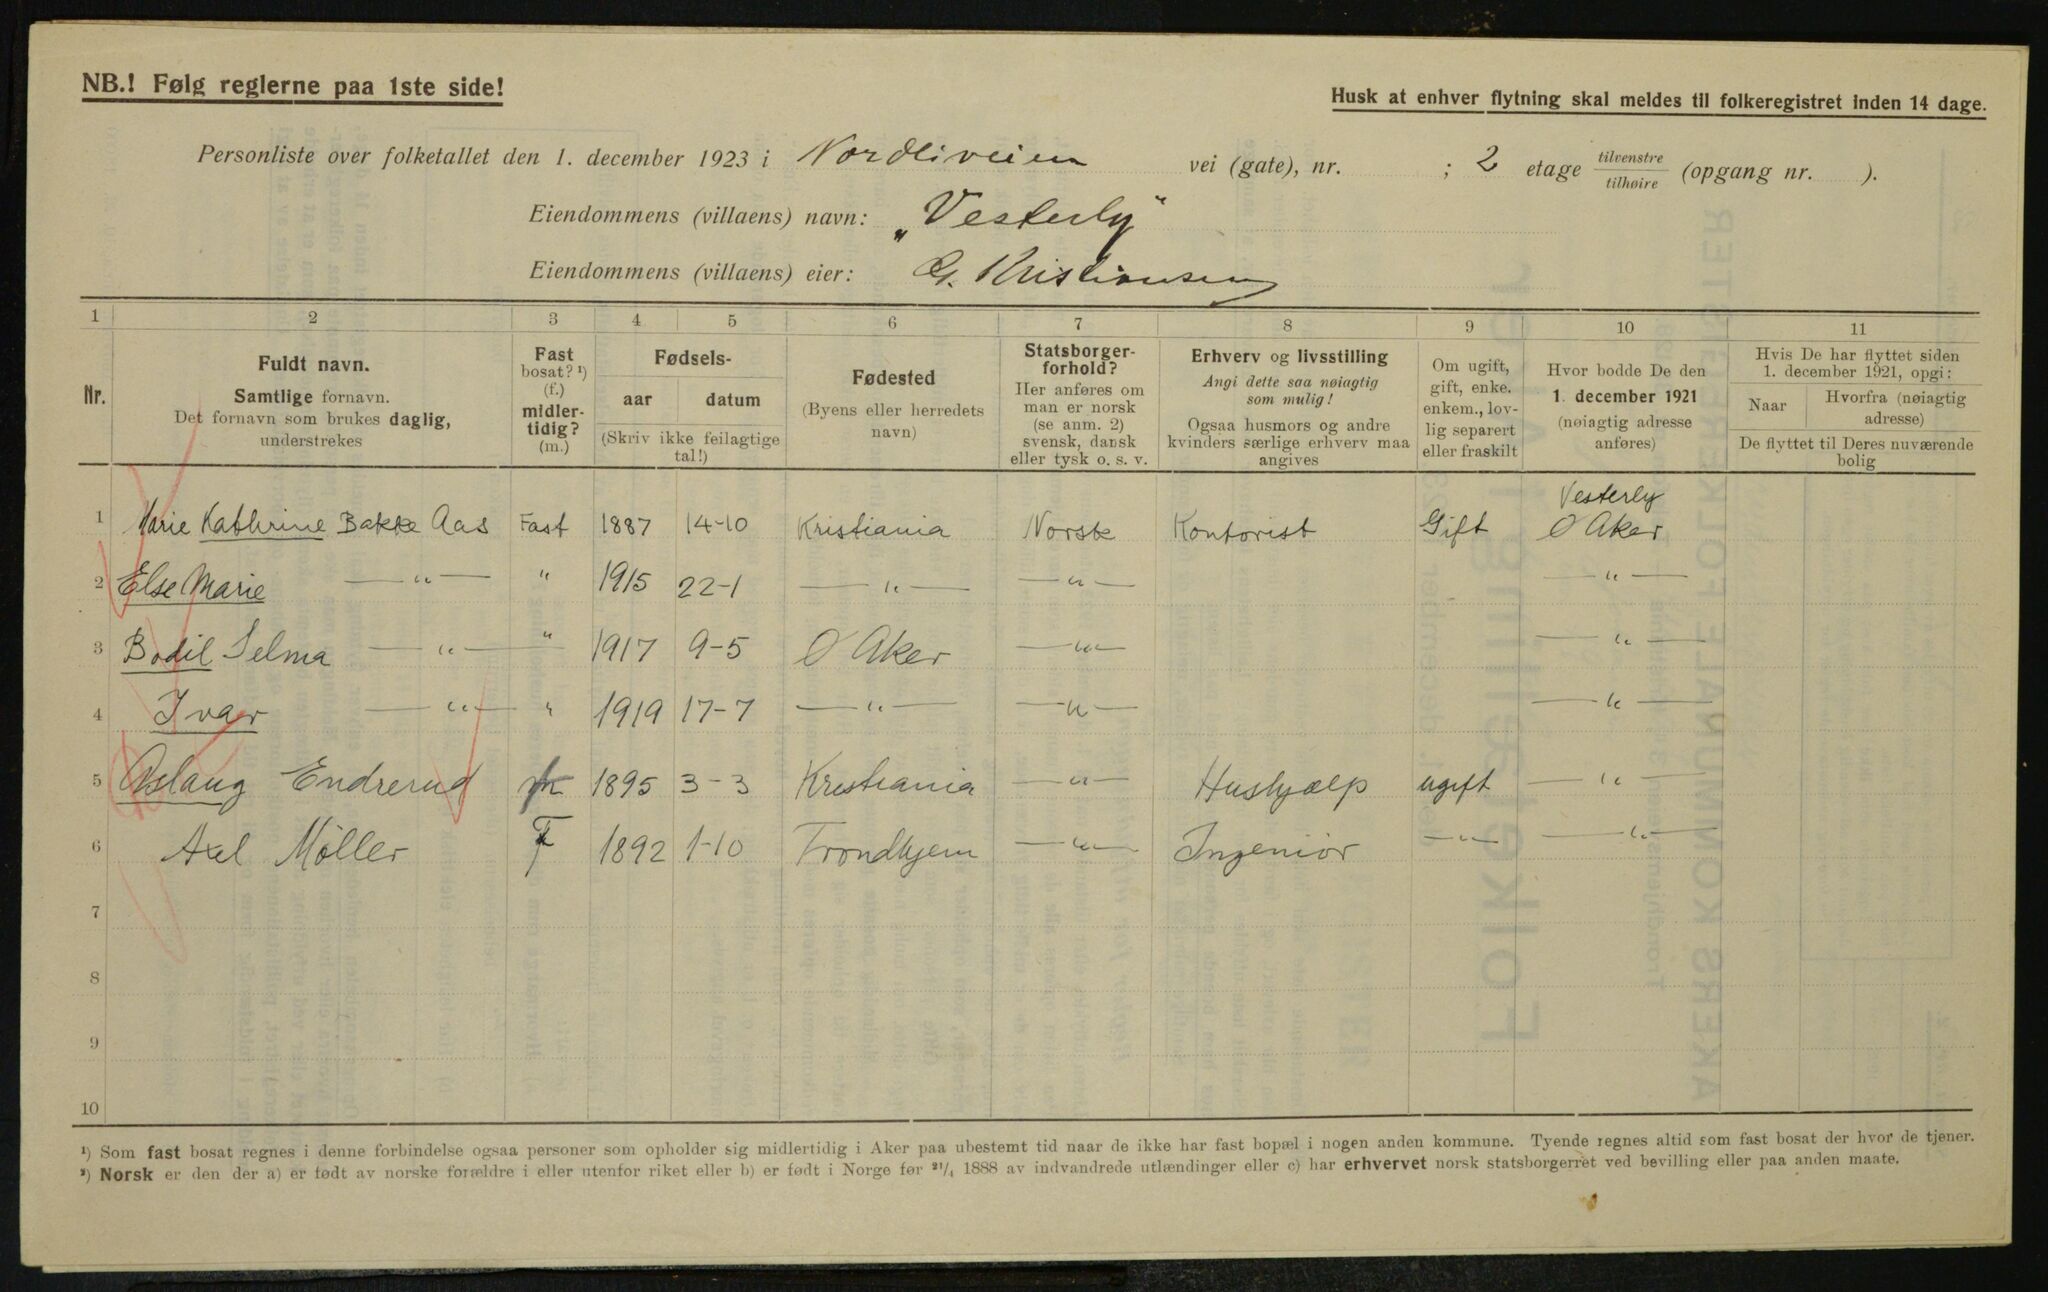 NB.! Følg reglerne paa 1ste side!
Husk at enhver flytning skal meldes til folkeregistret inden 14 dage.
Personliste over folketallet den 1. december 1923 i Nordliveien vei (gate), nr. ; 2 etage tilvenstre/tilhøire (opgang nr. ).
Eiendommens (villaens) navn: „Vesterly"
Eiendommens (villaens) eier: G. Kristiansen
1 2 3 4 5 6 7 8 9 10 11
Nr.
Fuldt navn.
Samtlige fornavn.
Det fornavn som brukes daglig,
understrekes
Fast
bosat? ¹)
(f.)
midler-
tidig?
(m.)
Fødsels-
aar datum
(Skriv ikke feilagtige
tal!)
Fødested
(Byens eller herredets
navn)
Statsborger-
forhold?
Her anføres om
man er norsk
(se anm. 2)
svensk, dansk
eller tysk o. s. v.
Erhverv og livsstilling
Angi dette saa nøiagtig
som mulig!
Ogsaa husmors og andre
kvinders særlige erhverv maa
angives
Om ugift,
gift, enke.
enkem., lov-
lig separert
eller fraskilt
Hvor bodde De den
1. december 1921
(nøiagtig adresse
anføres)
Hvis De har flyttet siden
1. december 1921, opgi:
Naar
Hvorfra (nøiagtig
adresse)
De flyttet til Deres nuværende
bolig
Vesterly
1 Marie Kathrine Bakke Aas Fast 1887 14-10 Kristiania Norsk Kontorist Gift Ø Aker
2 Else Marie —"— " 1915 22-1 —"— —"— —"—
3 Bodil Selma —"— " 1917 9-5 Ø Aker —"— —"—
4 Ivar —"— " 1919 17-7 —"— —"— —"—
5 Aslaug Endrerud 1895 3-3 Kristiania —"— Hushjælp ugift —"—
6 Axel Møller F 1892 1-10 Trondhjem —"— Ingeniør —"— —"—
7
8
9
10
¹) Som fast bosat regnes i denne forbindelse ogsaa personer som opholder sig midlertidig i Aker paa ubestemt tid naar de ikke har fast bopæl i nogen anden kommune. Tyende regnes altid som fast bosat der hvor de tjener.
²) Norsk er den der a) er født av norske forældre i eller utenfor riket eller b) er født i Norge før ²¹/₄ 1888 av indvandrede utlændinger eller c) har erhvervet norsk statsborgerret ved bevilling eller paa anden maate.